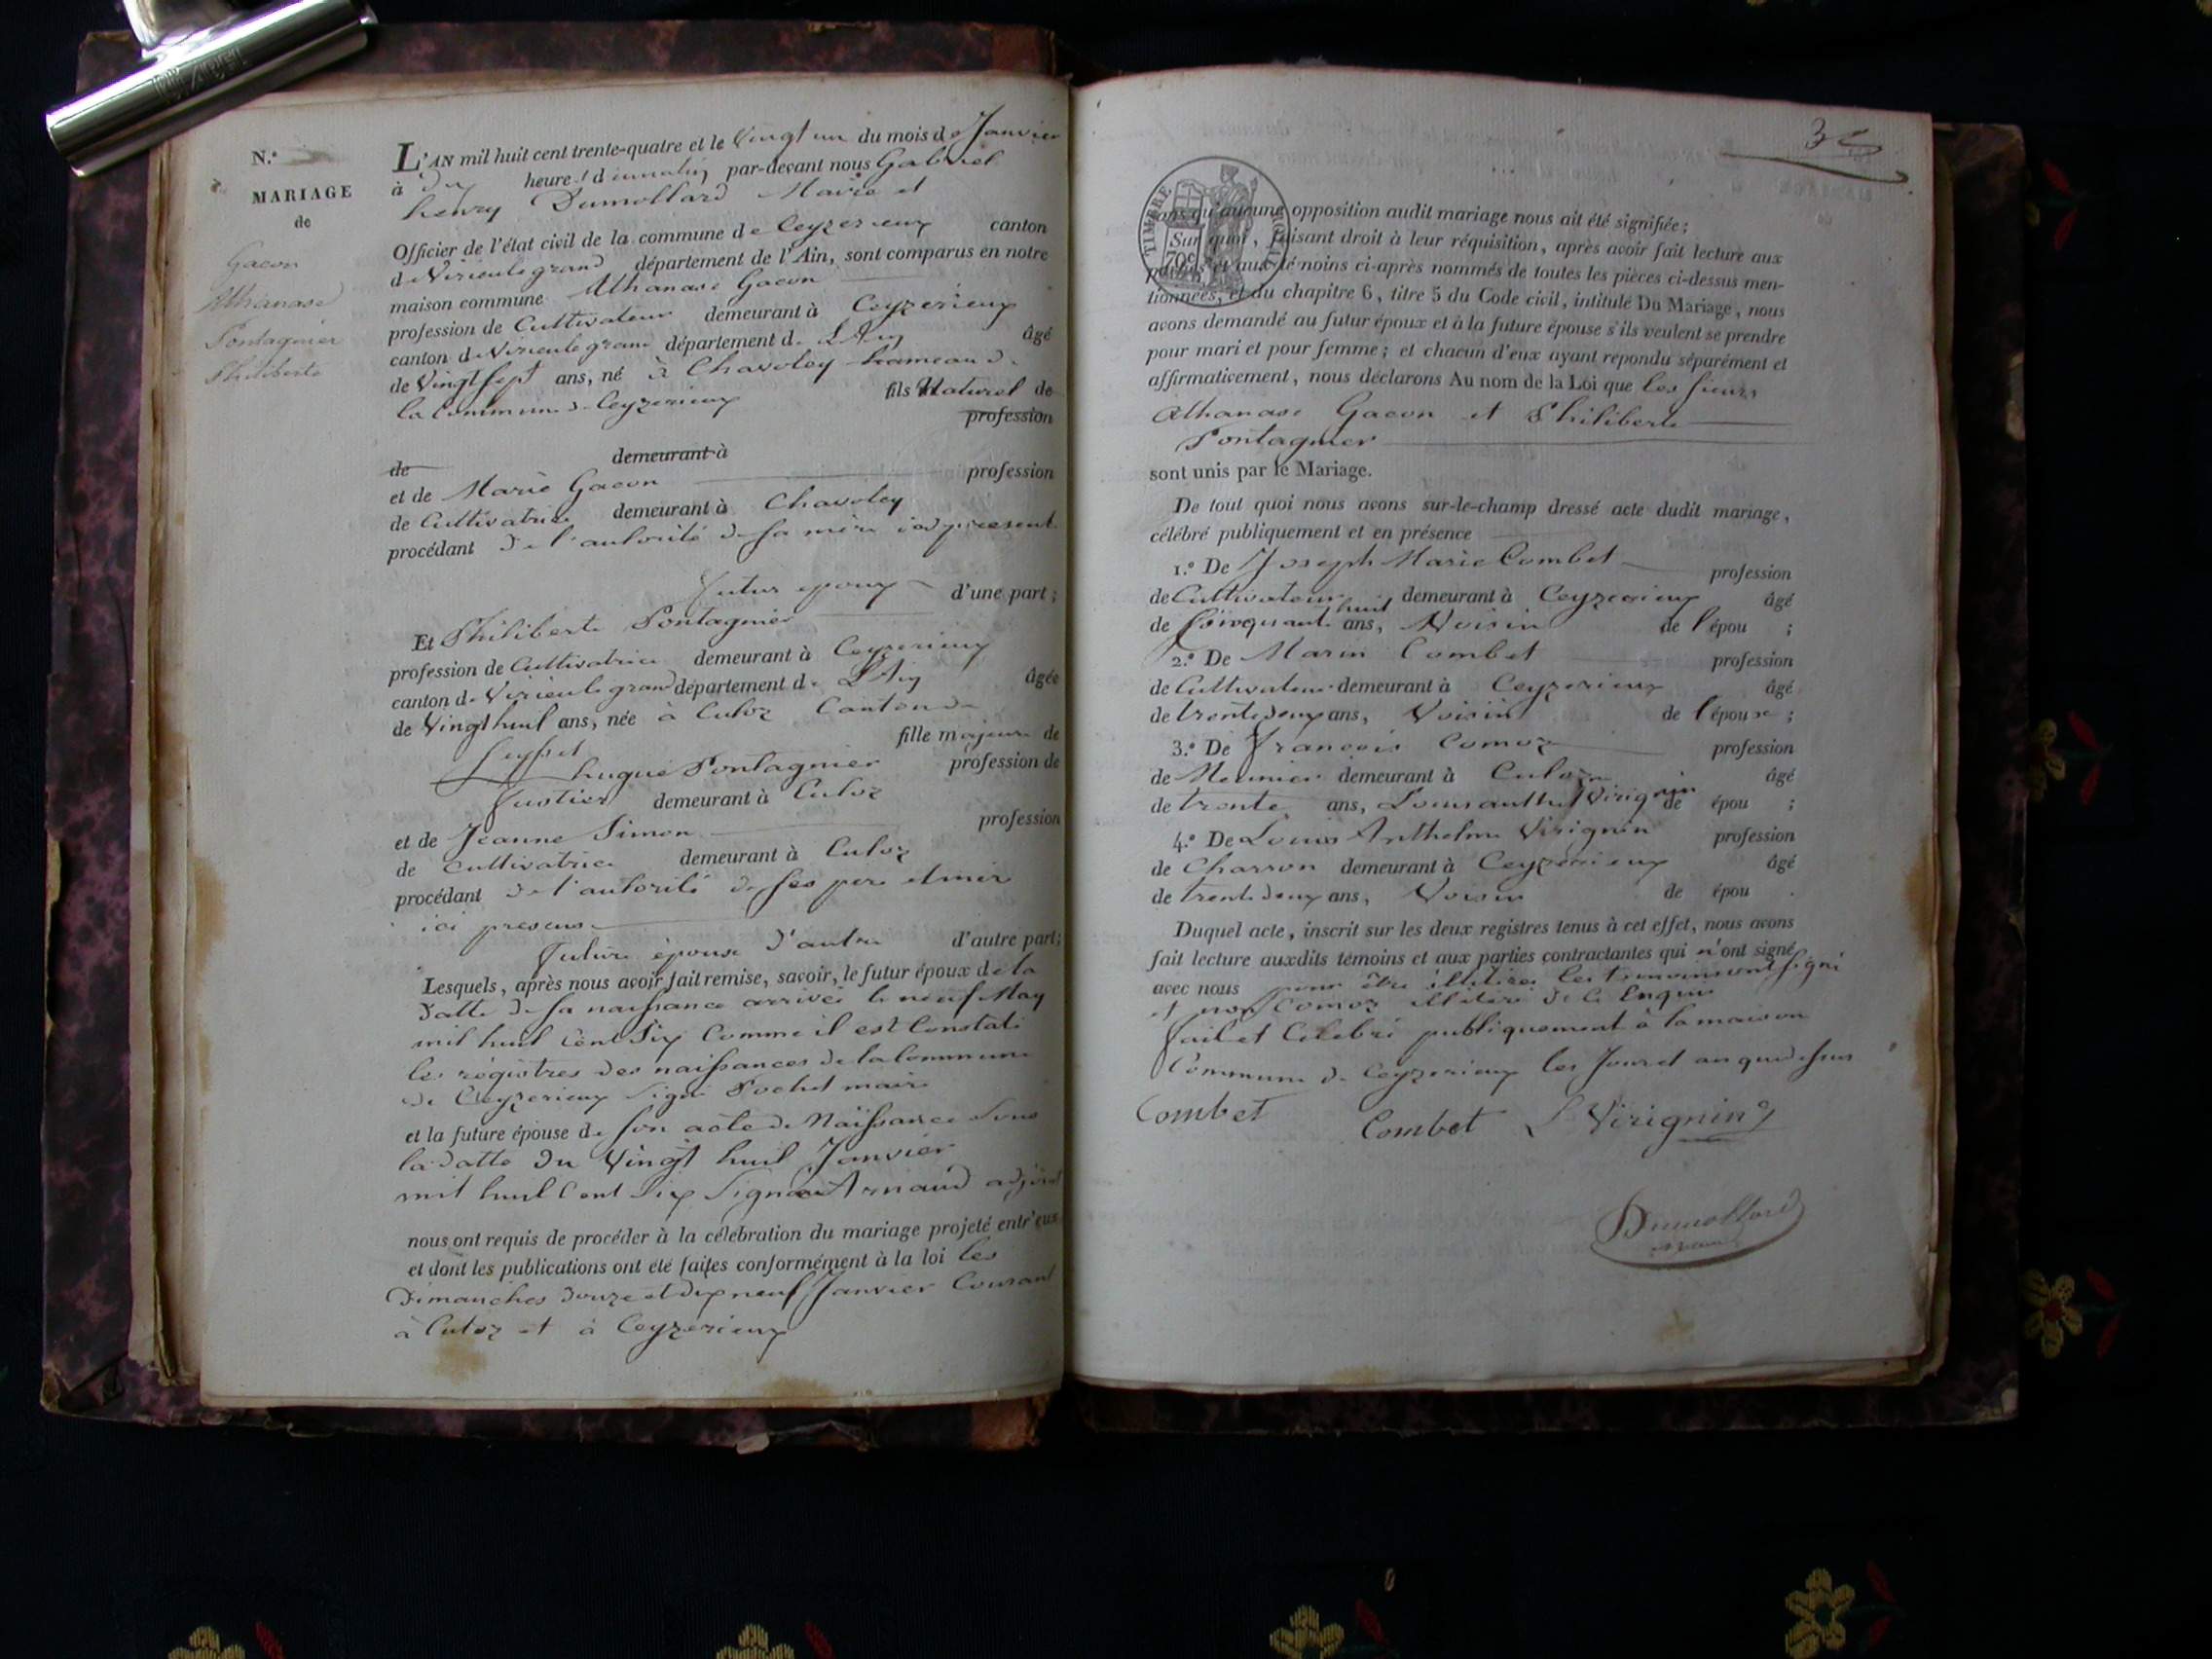 N.º
MARIAGE
de
Gacon
Athanase
Pontagnier
Philiberte
L'AN mil huit cent trente-quatre et le Vingt un du mois de Janvier
à Dix heures du matin par-devant nous Gabriel
henry Dumollard Maire et
Officier de l'état civil de la commune de Ceyzerieux canton
de Virieulegrand département de l'Ain, sont comparus en notre
maison commune Athanase Gacon
profession de Cultivateur demeurant à Ceyzerieux
canton de Virieulegrand département de L'Ain âgé
de Vingt sept ans, né à Chavoley hameau de
la Commune de Ceyzerieux fils Naturel de
profession
de demeurant à
et de Marie Gacon profession
de Cultivatrice demeurant à Chavoley
procédant de l'autorité de sa mère icy présent
futur epoux d'une part;
Et Philiberte Pontagnier
profession de Cultivatrice demeurant à Ceyzerieux
canton de Virieulegrand département de L'Ain âgée
de Vingt huit ans, née à Culoz Canton de
Seyssel fille majeure de
hugue Pontagnier profession de
demeurant à Culoz
et de Jeanne Simon profession
de Cultivatrice demeurant à Culoz
procédant de l'autorité de ses pere et mère
ici presens
future épouse d'autre d'autre part;
Lesquels, après nous avoir fait remise, savoir, le futur époux de la
datte de sa naissance arrivée le neuf May
mil huit Cent Six Comme il est Constaté
les régistres des naissances de la Commune
de Ceyzerieux signé Pochet maire
et la future épouse de son acte de Naissance Sous
la datte du Vingt huit Janvier
mil huit Cent Six Signé Arnaud adjoint
nous ont requis de procéder à la célébration du mariage projeté entr'eux
et dont les publications ont été faites conformément à la loi les
Dimanches douze et dix neuf Janvier Courant
à Culoz et à Ceyzerieux
TIMBRE ROYAL
70c
sans qu'aucune opposition audit mariage nous ait été signifiée;
Sur quoi, faisant droit à leur réquisition, après avoir fait lecture aux
parties et aux témoins ci-après nommés de toutes les pièces ci-dessus men-
tionnées, et du chapitre 6, titre 5 du Code civil, intitulé Du Mariage, nous
avons demandé au futur époux et à la future épouse s'ils veulent se prendre
pour mari et pour femme; et chacun d'eux ayant répondu séparément et
affirmativement, nous déclarons Au nom de la Loi que les sieurs
Athanase Gacon et Philiberte
Pontagnier
sont unis par le Mariage.
De tout quoi nous avons sur-le-champ dressé acte dudit mariage,
célébré publiquement et en présence
1.º De Joseph Marie Combet profession
de Cultivateur demeurant à Ceyzerieux âgé
de Cinquante huit ans, Voisin de l'épou ;
2.º De Marin Combet profession
de Cultivateur demeurant à Ceyzerieux âgé
de trente deux ans, Voisin de l'épouse ;
3.º De François Comoz profession
de Meunier demeurant à Culoz âgé
de trente ans, Louis Virignin de épou ;
4.º De Louis Anthelme Virignin profession
de Charron demeurant à Ceyzerieux âgé
de trente deux ans, Voisin de épou .
Duquel acte, inscrit sur les deux registres tenus à cet effet, nous avons
fait lecture auxdits témoins et aux parties contractantes qui n'ont signé
avec nous pour être illitérés les temoins ont signé
et non Comoz illitéré de ce Enquis
fait et Célébré publiquement à la maison
Commune de Ceyzerieux les Jour et an que dessus
Combet Combet L Virignin
Dumollard
maire